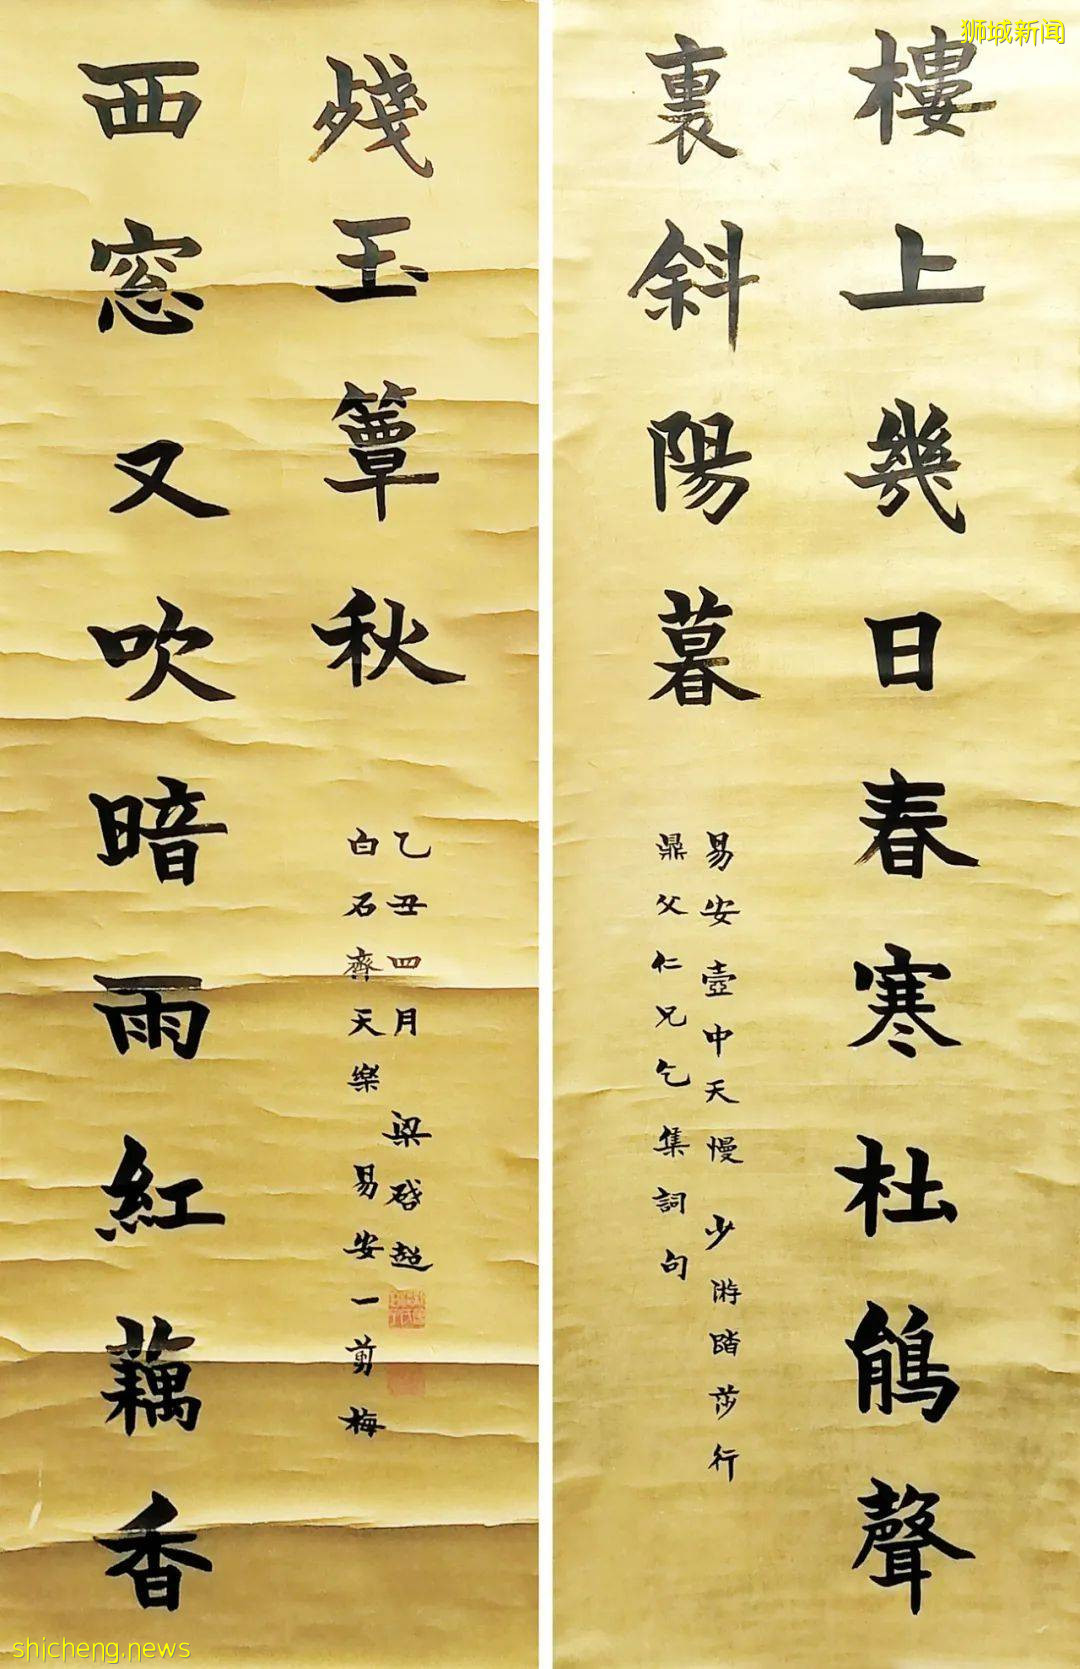 狮城新闻
樓上幾日春寒杜鵑聲
裏斜陽暮
易安壺中天慢 少游踏莎行
鼎父仁兄乞集詞句
西窓又吹暗雨紅藕香
殘玉簟秋
白石齊天樂 易安一剪梅
乙丑四月 梁啟超
shicheng.news